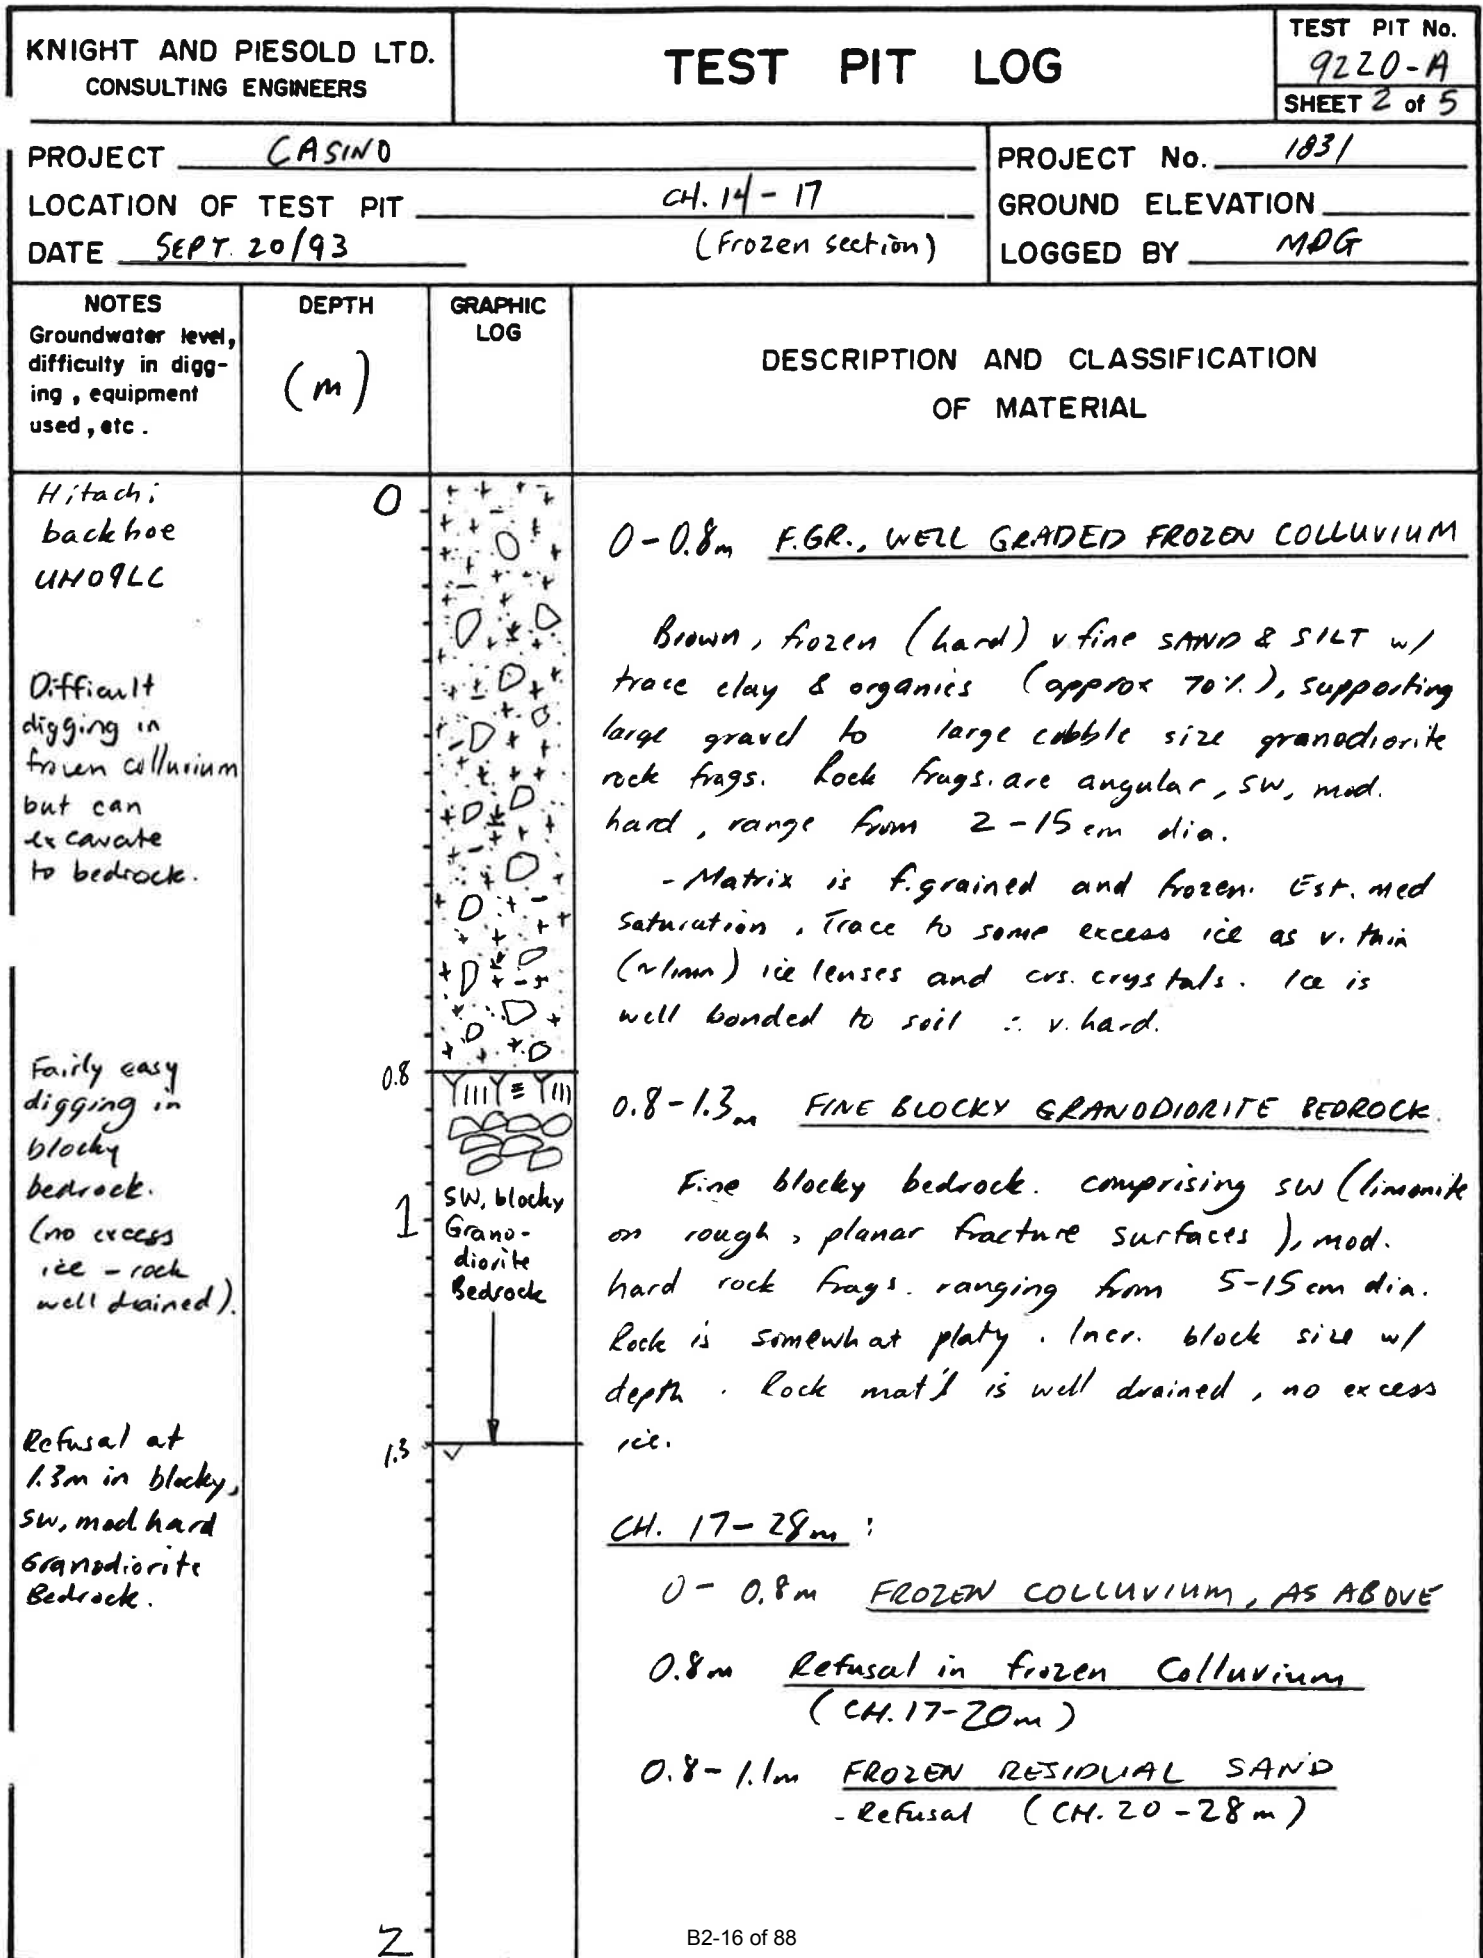 KNIGHT AND PIESOLD LTD.
CONSULTING ENGINEERS
TEST PIT LOG
TEST PIT No.
9220-A
SHEET 2 of 5
PROJECT CASINO
LOCATION OF TEST PIT CH. 14 - 17
DATE SEPT. 20/93 (Frozen section)
PROJECT No. 1831
GROUND ELEVATION
LOGGED BY MDG
NOTES
Groundwater level,
difficulty in digg-
ing, equipment
used, etc.
DEPTH
(m)
GRAPHIC
LOG
DESCRIPTION AND CLASSIFICATION
OF MATERIAL
Hitachi
backhoe
UH09LC
Difficult
digging in
frozen colluvium
but can
excavate
to bedrock.
Fairly easy
digging in
blocky
bedrock.
(no excess
ice - rock
well drained).
Refusal at
1.3m in blocky,
SW, mod hard
Granodiorite
Bedrock.
0
0.8
1
1.3
2
SW, blocky
Grano-
diorite
Bedrock
0 - 0.8m F.GR., WELL GRADED FROZEN COLLUVIUM
Brown, frozen (hard) v. fine SAND & SILT w/
trace clay & organics (approx 70%.), supporting
large gravel to large cobble size granodiorite
rock frags. Rock frags. are angular, SW, mod.
hard, range from 2 - 15 cm dia.
- Matrix is f.grained and frozen. Est. med
saturation, Trace to some excess ice as v. thin
(~1mm) ice lenses and crs. crystals. Ice is
well bonded to soil ∴ v. hard.
0.8 - 1.3m FINE BLOCKY GRANODIORITE BEDROCK.
Fine blocky bedrock. comprising SW (limonite
on rough, planar fracture surfaces), mod.
hard rock frags. ranging from 5-15 cm dia.
Rock is somewhat platy. Incr. block size w/
depth. Rock mat'l is well drained, no excess
ice.
CH. 17 - 28m :
0 - 0.8m FROZEN COLLUVIUM, AS ABOVE
0.8m Refusal in frozen Colluvium
(CH. 17-20m)
0.8 - 1.1m FROZEN RESIDUAL SAND
- Refusal (CH. 20 - 28m)
B2-16 of 88